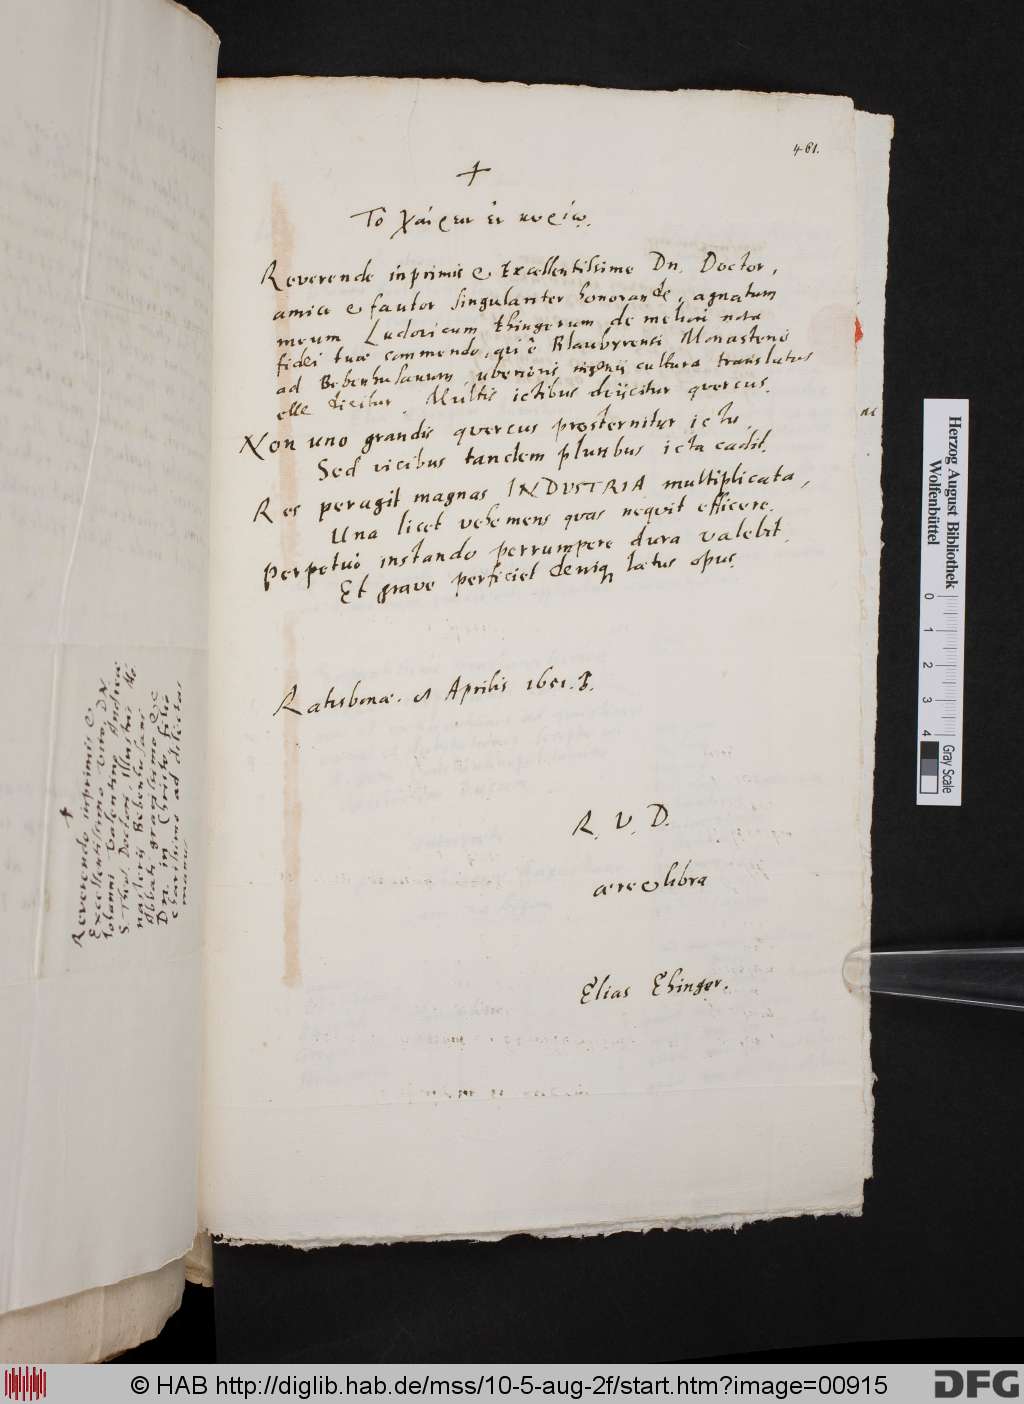 461.
+
Τὸ χαίρειν ἐν κυρίῳ.
Reverende inprimis & Excellentissime Dn. Doctor,
amice & fautor singulariter honorande, agnatum
meum Ludovicum Ehingerum de meliori nota
fidei tuæ commendo, qui è Blaubyrensi Monasterio
ad Bebenhusanum, uberioris ingenij cultura translatus
esse dicitur. Multis ictibus dejicitur quercus.
Non uno grandis quercus prosternitur ictu,
Sed vicibus tandem pluribus icta cadit.
Res peragit magnas INDUSTRIA multiplicata,
Una licet vehemens quas nequit efficere.
Perpetuò instando perrumpere dura valebit.
Et grave perficiet deniq lætus opus.
Ratisbonæ. Aprilis 1651.
R. V. D.
ære & libra
Elias Ehinger.
+
Reverendo inprimis &
Excellentissimo viro, DN.
Iohanni Valentino Andreæ
S. Theol. Doctori, Illustris Mo
nasterij Bebenhusani
Abbati gravissimo &c
Dn. in Christo filio
charissimo ad dilectas
manus
Herzog August Bibliothek
Wolfenbüttel
0 1 2 3 4
Gray Scale
© HAB http://diglib.hab.de/mss/10-5-aug-2f/start.htm?image=00915
DFG